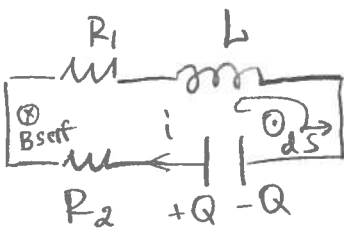 R1 L
⊗ i ⊙
Bself dS
R2 +Q -Q